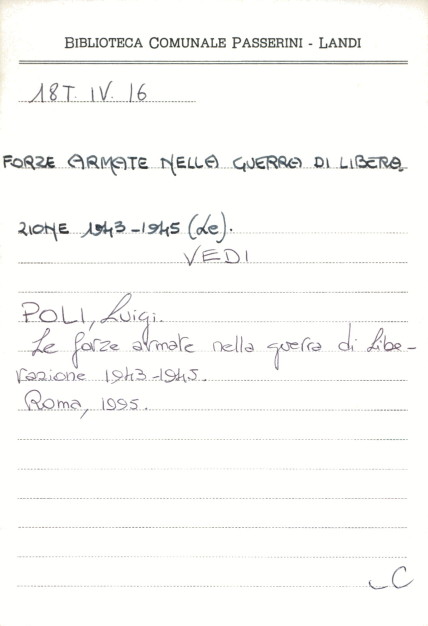 BIBLIOTECA COMUNALE PASSERINI - LANDI
18T. IV. 16
FORZE ARMATE NELLA GUERRA DI LIBERA
ZIONE 1943-1945 (Le).
VEDI
POLI, Luigi.
Le forze armate nella guerra di Libe-
razione 1943-1945.
Roma, 1995.
C